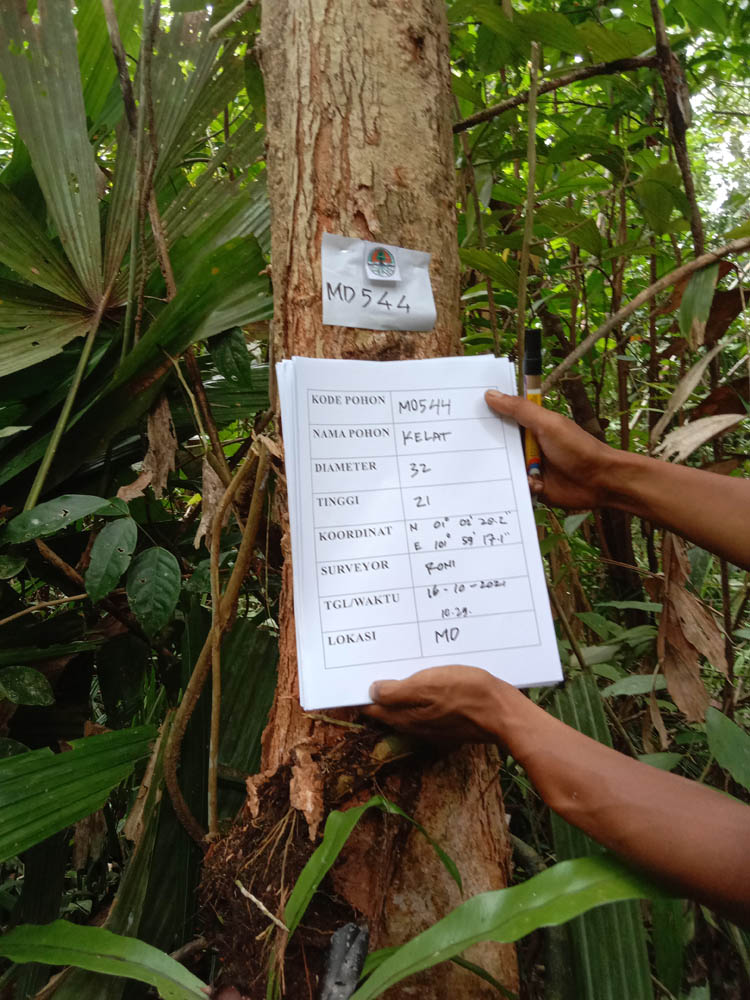 MD544
KODE POHON MD544
NAMA POHON KELAT
DIAMETER 32
TINGGI 21
KOORDINAT N 01° 02' 28.2"
E 101° 59' 17.1"
SURVEYOR RONI
TGL/WAKTU 16-10-2021
10.29.
LOKASI MD